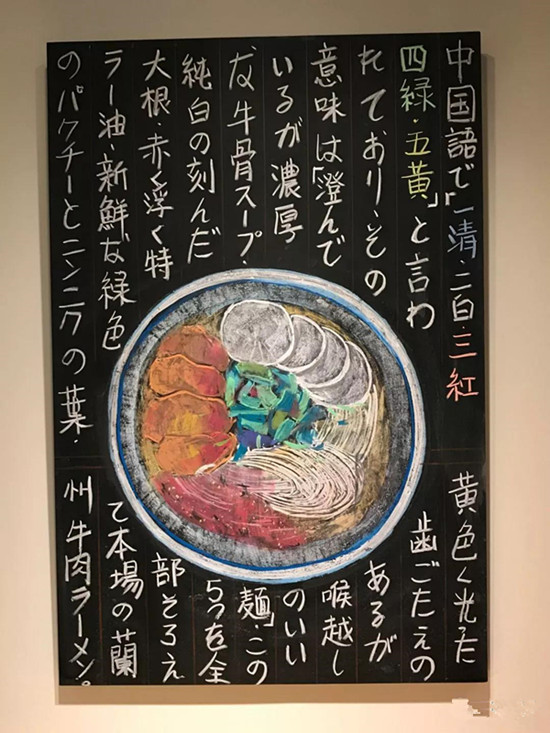 中国語で「一清・二白・三紅
四緑・五黄」と言わ
れており、その
意味は「澄んで
いるが濃厚
な牛骨スープ・
純白の刻んだ
大根・赤く浮く特
ラー油・新鮮な緑色
のパクチーとニンニクの葉・
黄色く光った
歯ごたえの
あるが
喉越し
のいい
麺」この
5つを全
部そろえ
て本場の蘭
州牛肉ラーメン。